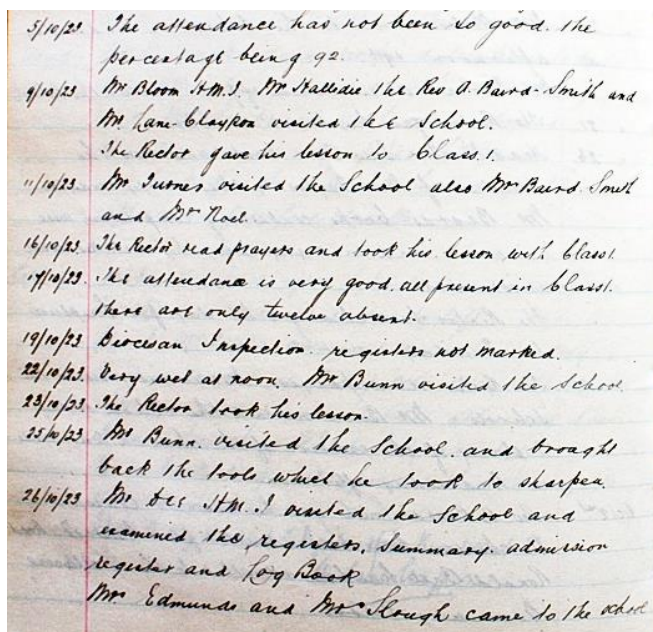 5/10/23. The attendance has not been so good. the
percentage being 92.
9/10/23 Mr Bloom H.M.I. Mr Hallidie. the Rev A. Baird-Smith and
Mr. Lane-Claypon visited the School.
The Rector gave his lesson to Class. 1.
11/10/23. Mr Turner visited the School also Mr Baird. Smith
and Mr Noel.
16/10/23. The Rector read prayers and took his lesson with Class 1.
17/10/23. The attendance is very good. all present in Class 1.
there are only twelve absent.
19/10/23. Diocesan Inspection. registers not marked.
22/10/23. Very wet at noon. Mr Bunn visited the School
23/10/23. The Rector took his lesson.
25/10/23 Mr Bunn. visited the School. and brought
back the tools which he took to sharpen.
26/10/23 Mr. H.M.I visited the School and
examined the registers. Summary. admission
register and Log Book
Mrs Edmunds and Mrs Slough came to the school